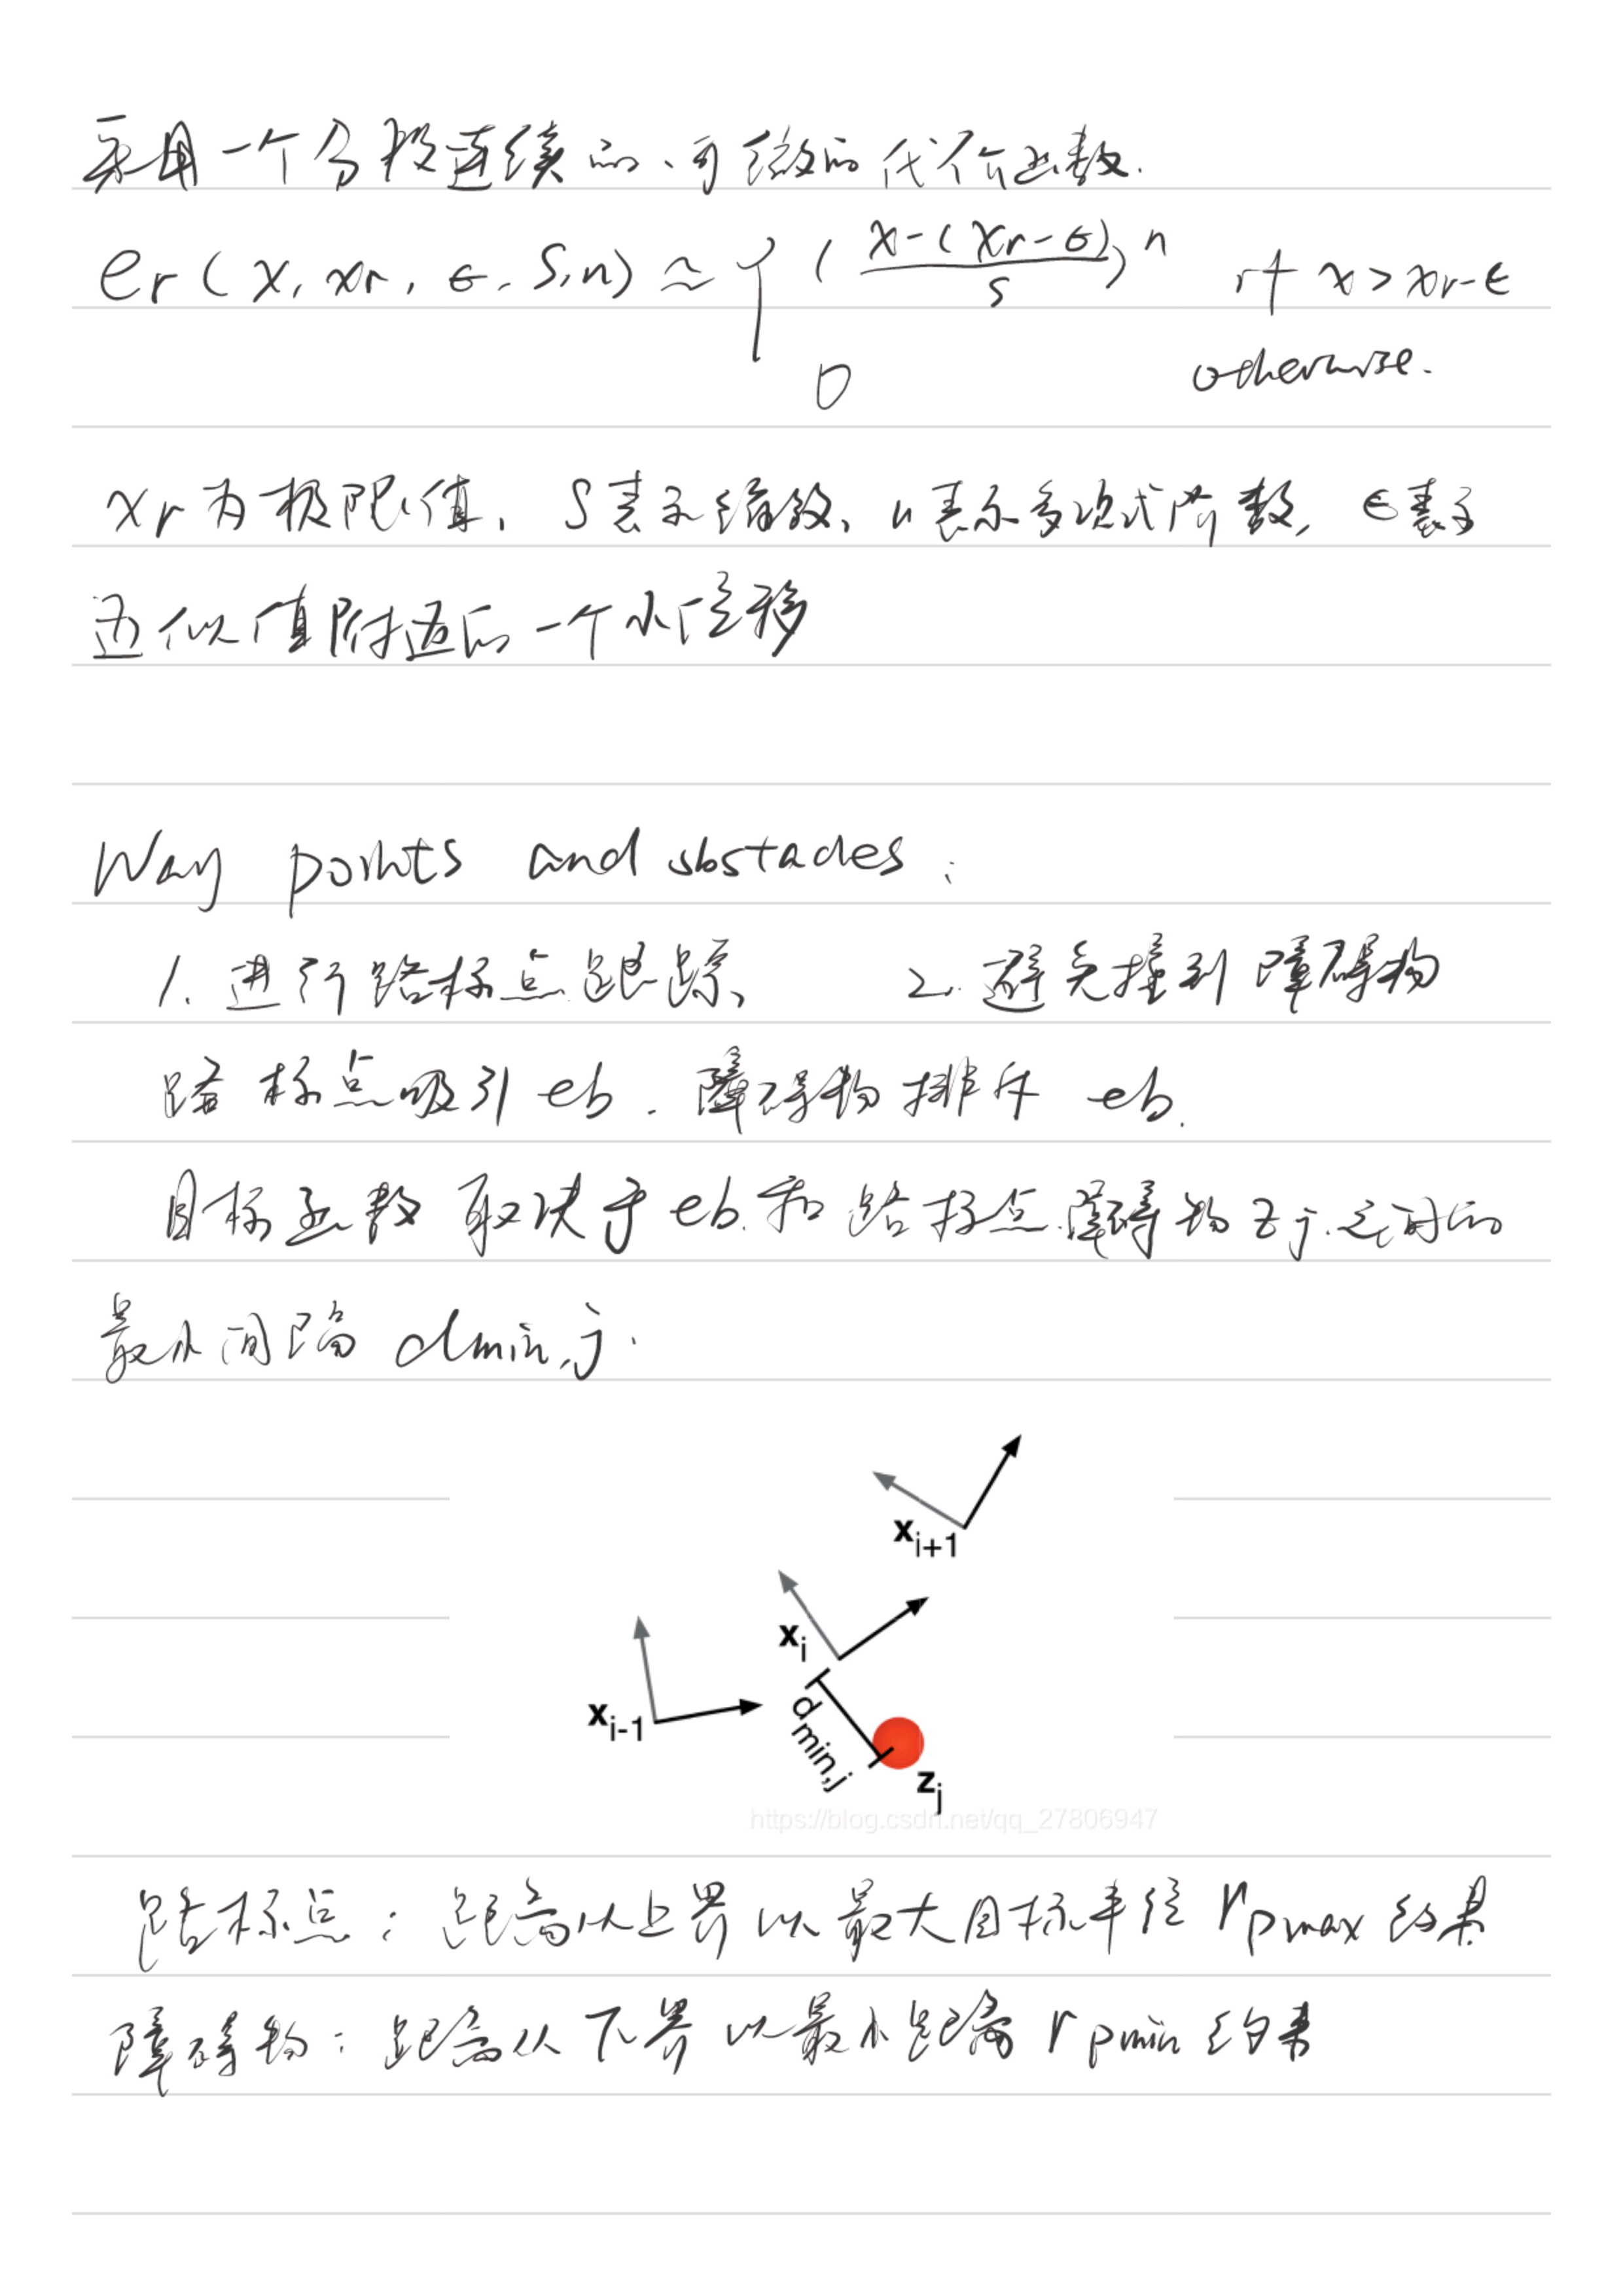 采用一个分段连续的、可微的代价函数.
er(x, xr, ϵ, S, n) ≃ { (x-(xr-ϵ)/s)^n if x > xr-ϵ
0 otherwise.
xr为极限值, S表示缩放, n表示多项式阶数, ϵ表示
近似值附近的一个小位移
Way points and obstacles:
1. 进行路标点跟踪、 2. 避免撞到障碍物
路标点吸引eb. 障碍物排斥eb.
目标函数取决于eb.和路标点.障碍物zj.之间的
最小间隔 dmin,j.
xi+1
xi
xi-1
dmin,j
zj
https://blog.csdn.net/qq_27806947
路标点: 距离从上界以最大目标半径 rpmax 约束
障碍物: 距离从下界以最小距离 rpmin 约束